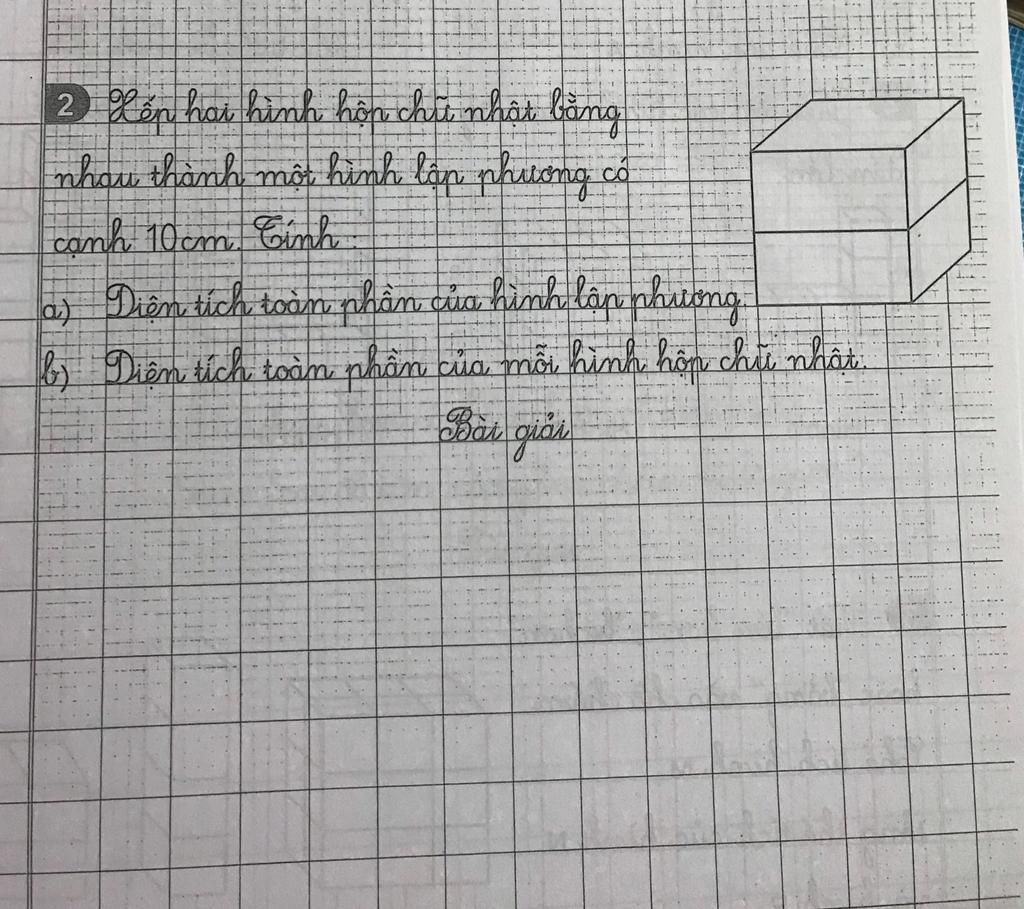 2 Xếp hai hình hộp chữ nhật bằng
nhau thành một hình lập phương có
cạnh 10cm. Tính:
a) Diện tích toàn phần của hình lập phương.
b) Diện tích toàn phần của mỗi hình hộp chữ nhật.
Bài giải